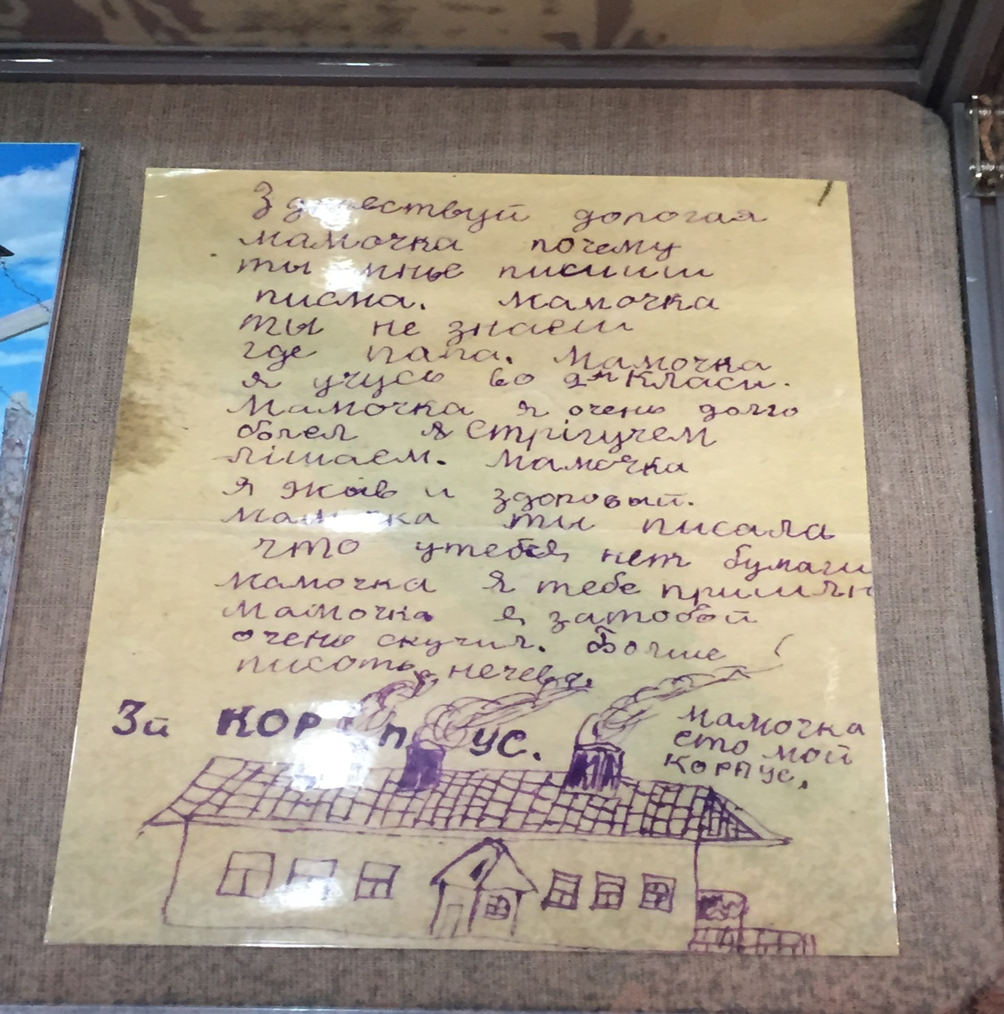 Здравствуй дорогая
мамочка почему
ты мнье писиш
писма. мамочка
ты не знаеш
где папа. Мамочка
я учусь во 2м Класи.
Мамочка я очень долго
болел я Стрігучем
лішаєм. Мамочка
я жів и здоровый.
мамочка ты писала
что утебя нет бумаги
мамочка я тебе
Мамочка я затобой
очень скучил. Болше
писать нечево.
3й КОРПУС.
мамочка
ето мой
корпус.